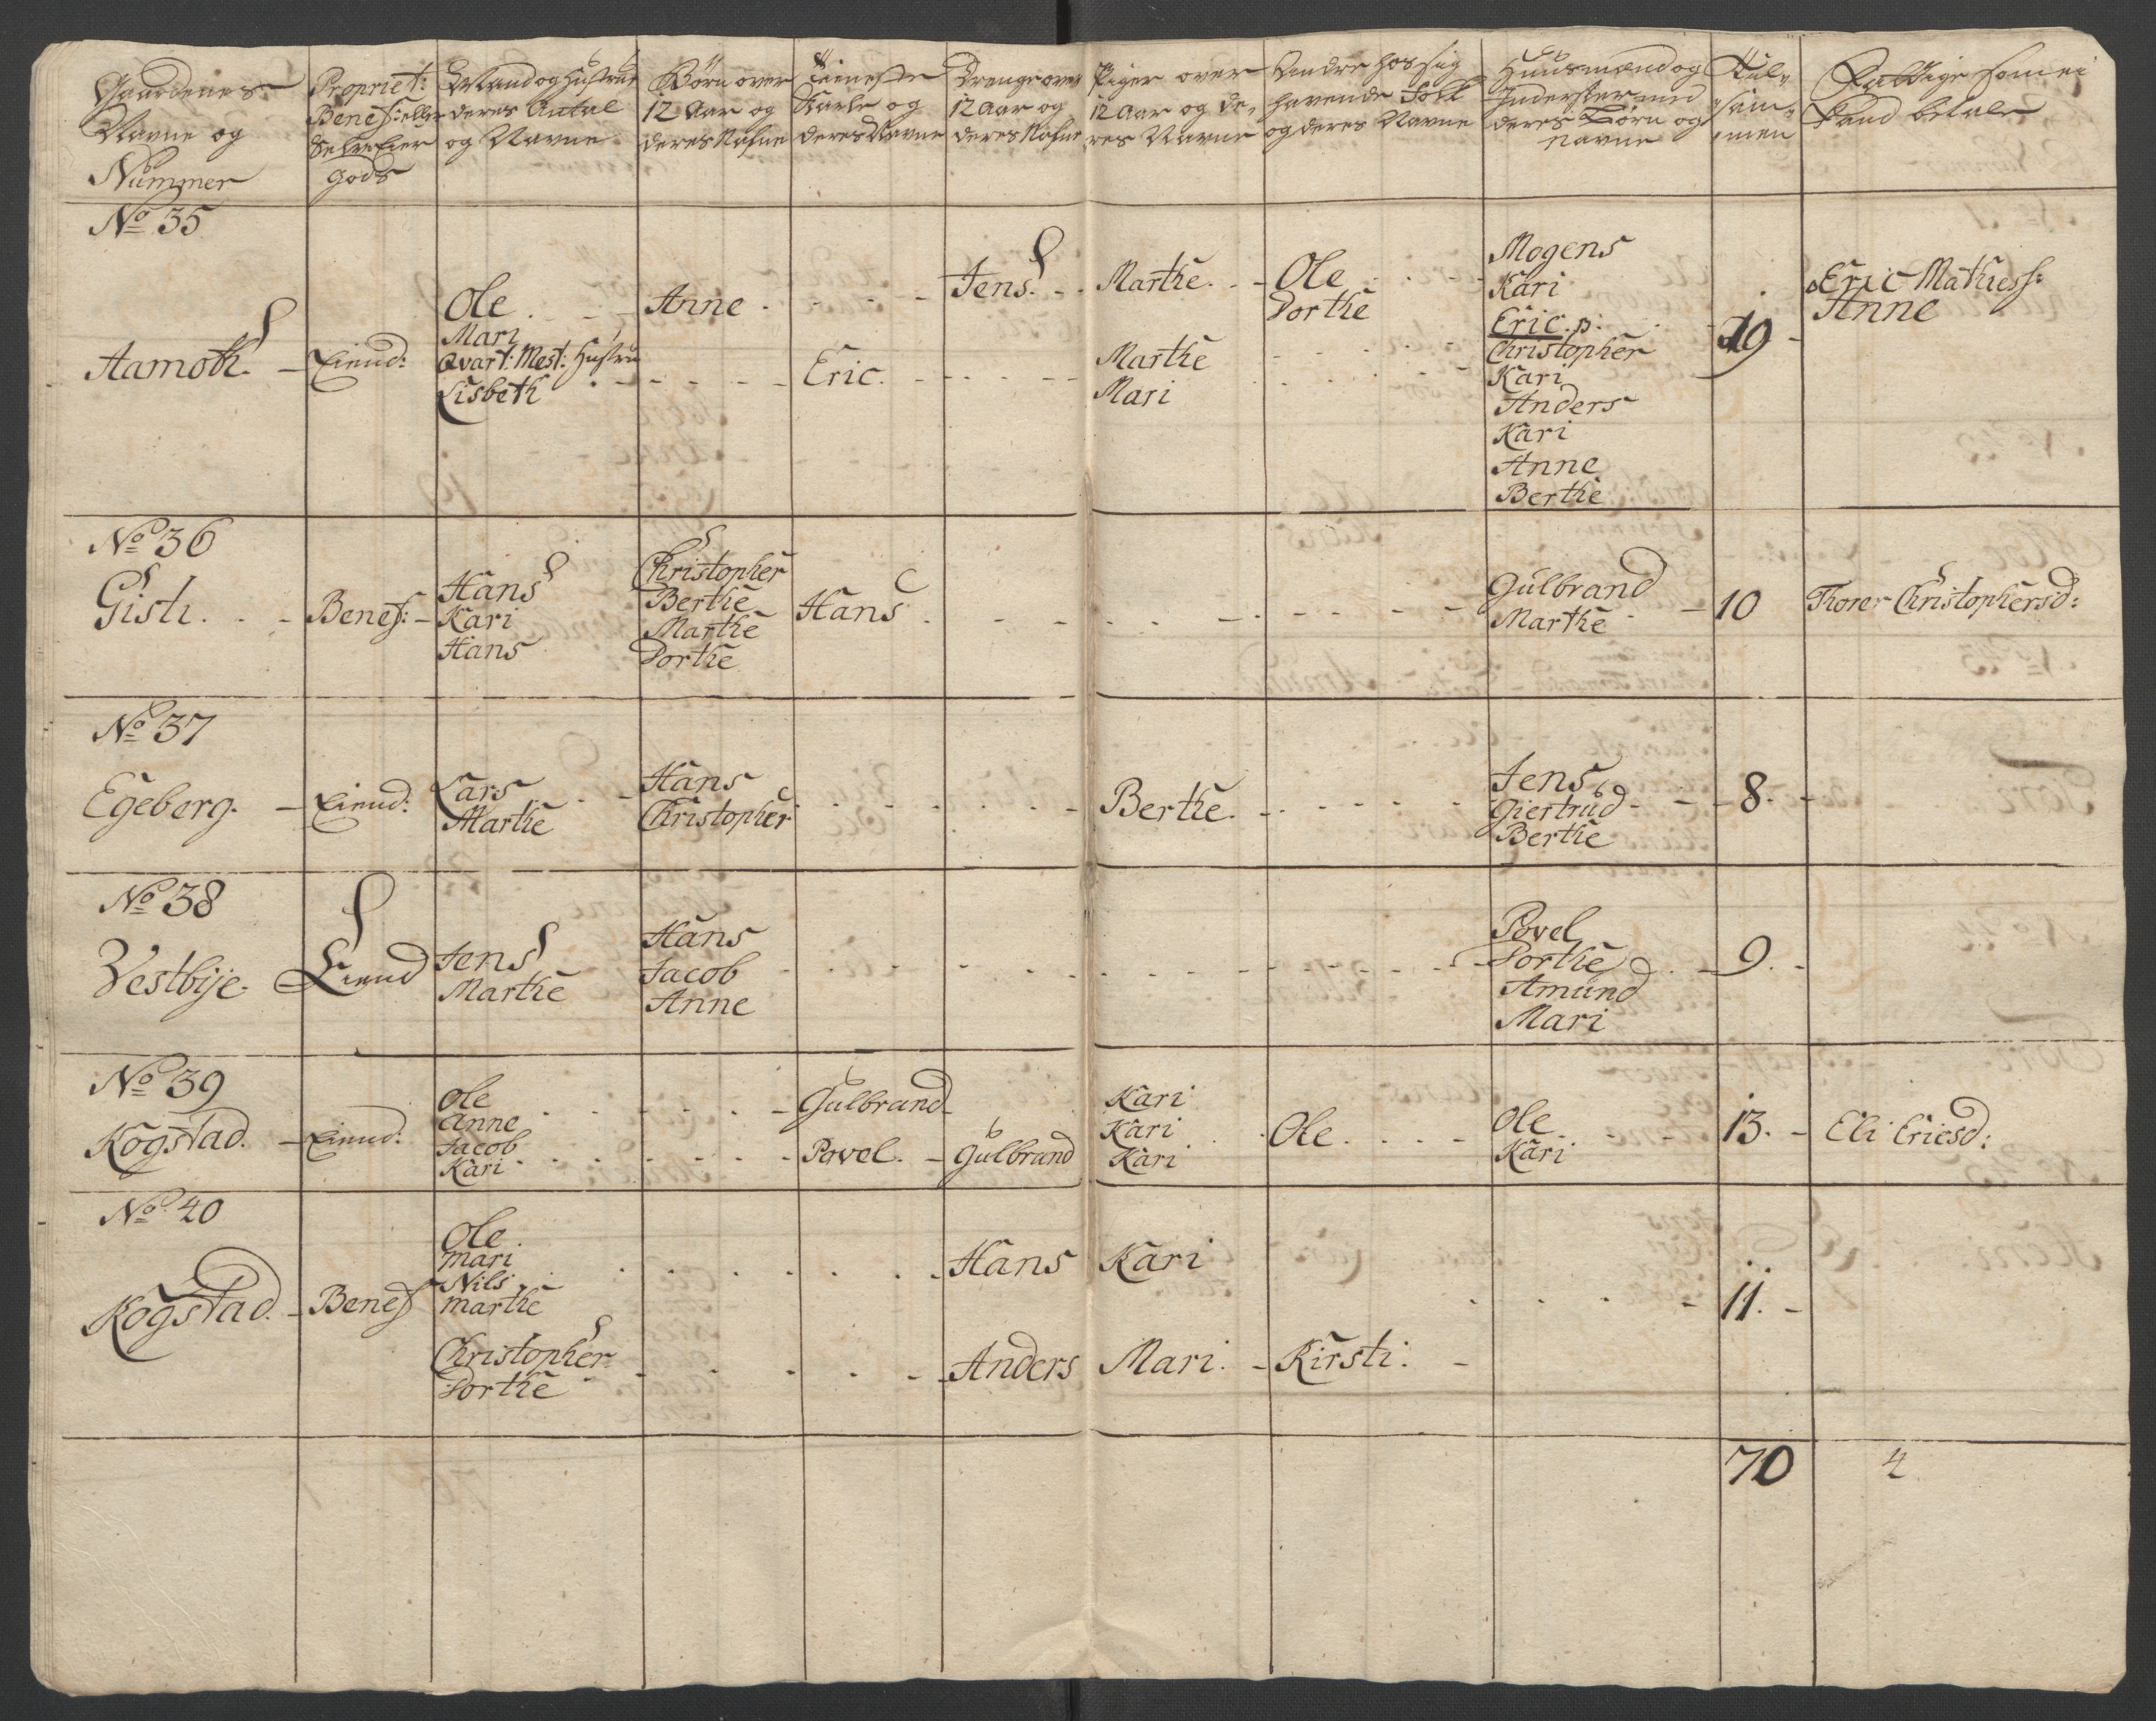 Gaardenes
Navne og
Nummer
Propriet:
Benef: eller
Selv Eier
gods
Mand og Hustrue
deres Antal
og Navne
Börn over
12 Aar og
deres Nafne
Tieneste
Karle og
deres Navne
Drenge over
12 Aar og
deres Nafne
Piger over
12 Aar og de-
res Navne
Andre hos sig
havende Folk
og deres Navne
Huusmænd og
Inderster med
deres Börn og
Navne
Til-
sam-
men
Fattige som ei
kand betale
No 35
Aamoth.
Eiend:
Ole
Mari
Qvart: Mest: Hustru
Lisbeth
Anne
Eric.
Jens.
Marthe.
Marthe
Mari
Ole
Dorthe
Mogens
Kari
Eric. p:
Christopher
Kari
Anders
Kari
Anne
Berthe
19
Eric Mathiess:
Anne
No 36
Gisti.
Benef:
Hans
Kari
Hans
Christopher
Berthe
Marthe
Dorthe
Hans
Gulbrand
Marthe
10
Thorer Christophersd:
No 37
Egeberg.
Eiend:
Lars
Marthe
Hans
Christopher
Berthe.
Jens
Giertrud
Berthe
8.
No 38
Vestbije.
Eiend
Jens
Marthe
Hans
Jacob
Anne
Povel
Dorthe
Amund
Mari
9.
No 39
Kogstad.
Eiend:
Ole
Anne
Jacob
Kari
Gulbrand
Povel.
Gulbrand
Kari
Kari
Kari
Ole.
Ole
Kari
13.
Eli Ericsd:
No 40
Kogstad.
Benef
Ole
Mari
Nils
Marthe
Christopher
Dorthe
Hans
Anders
Kari
Mari.
Kirsti.
11.
70
4